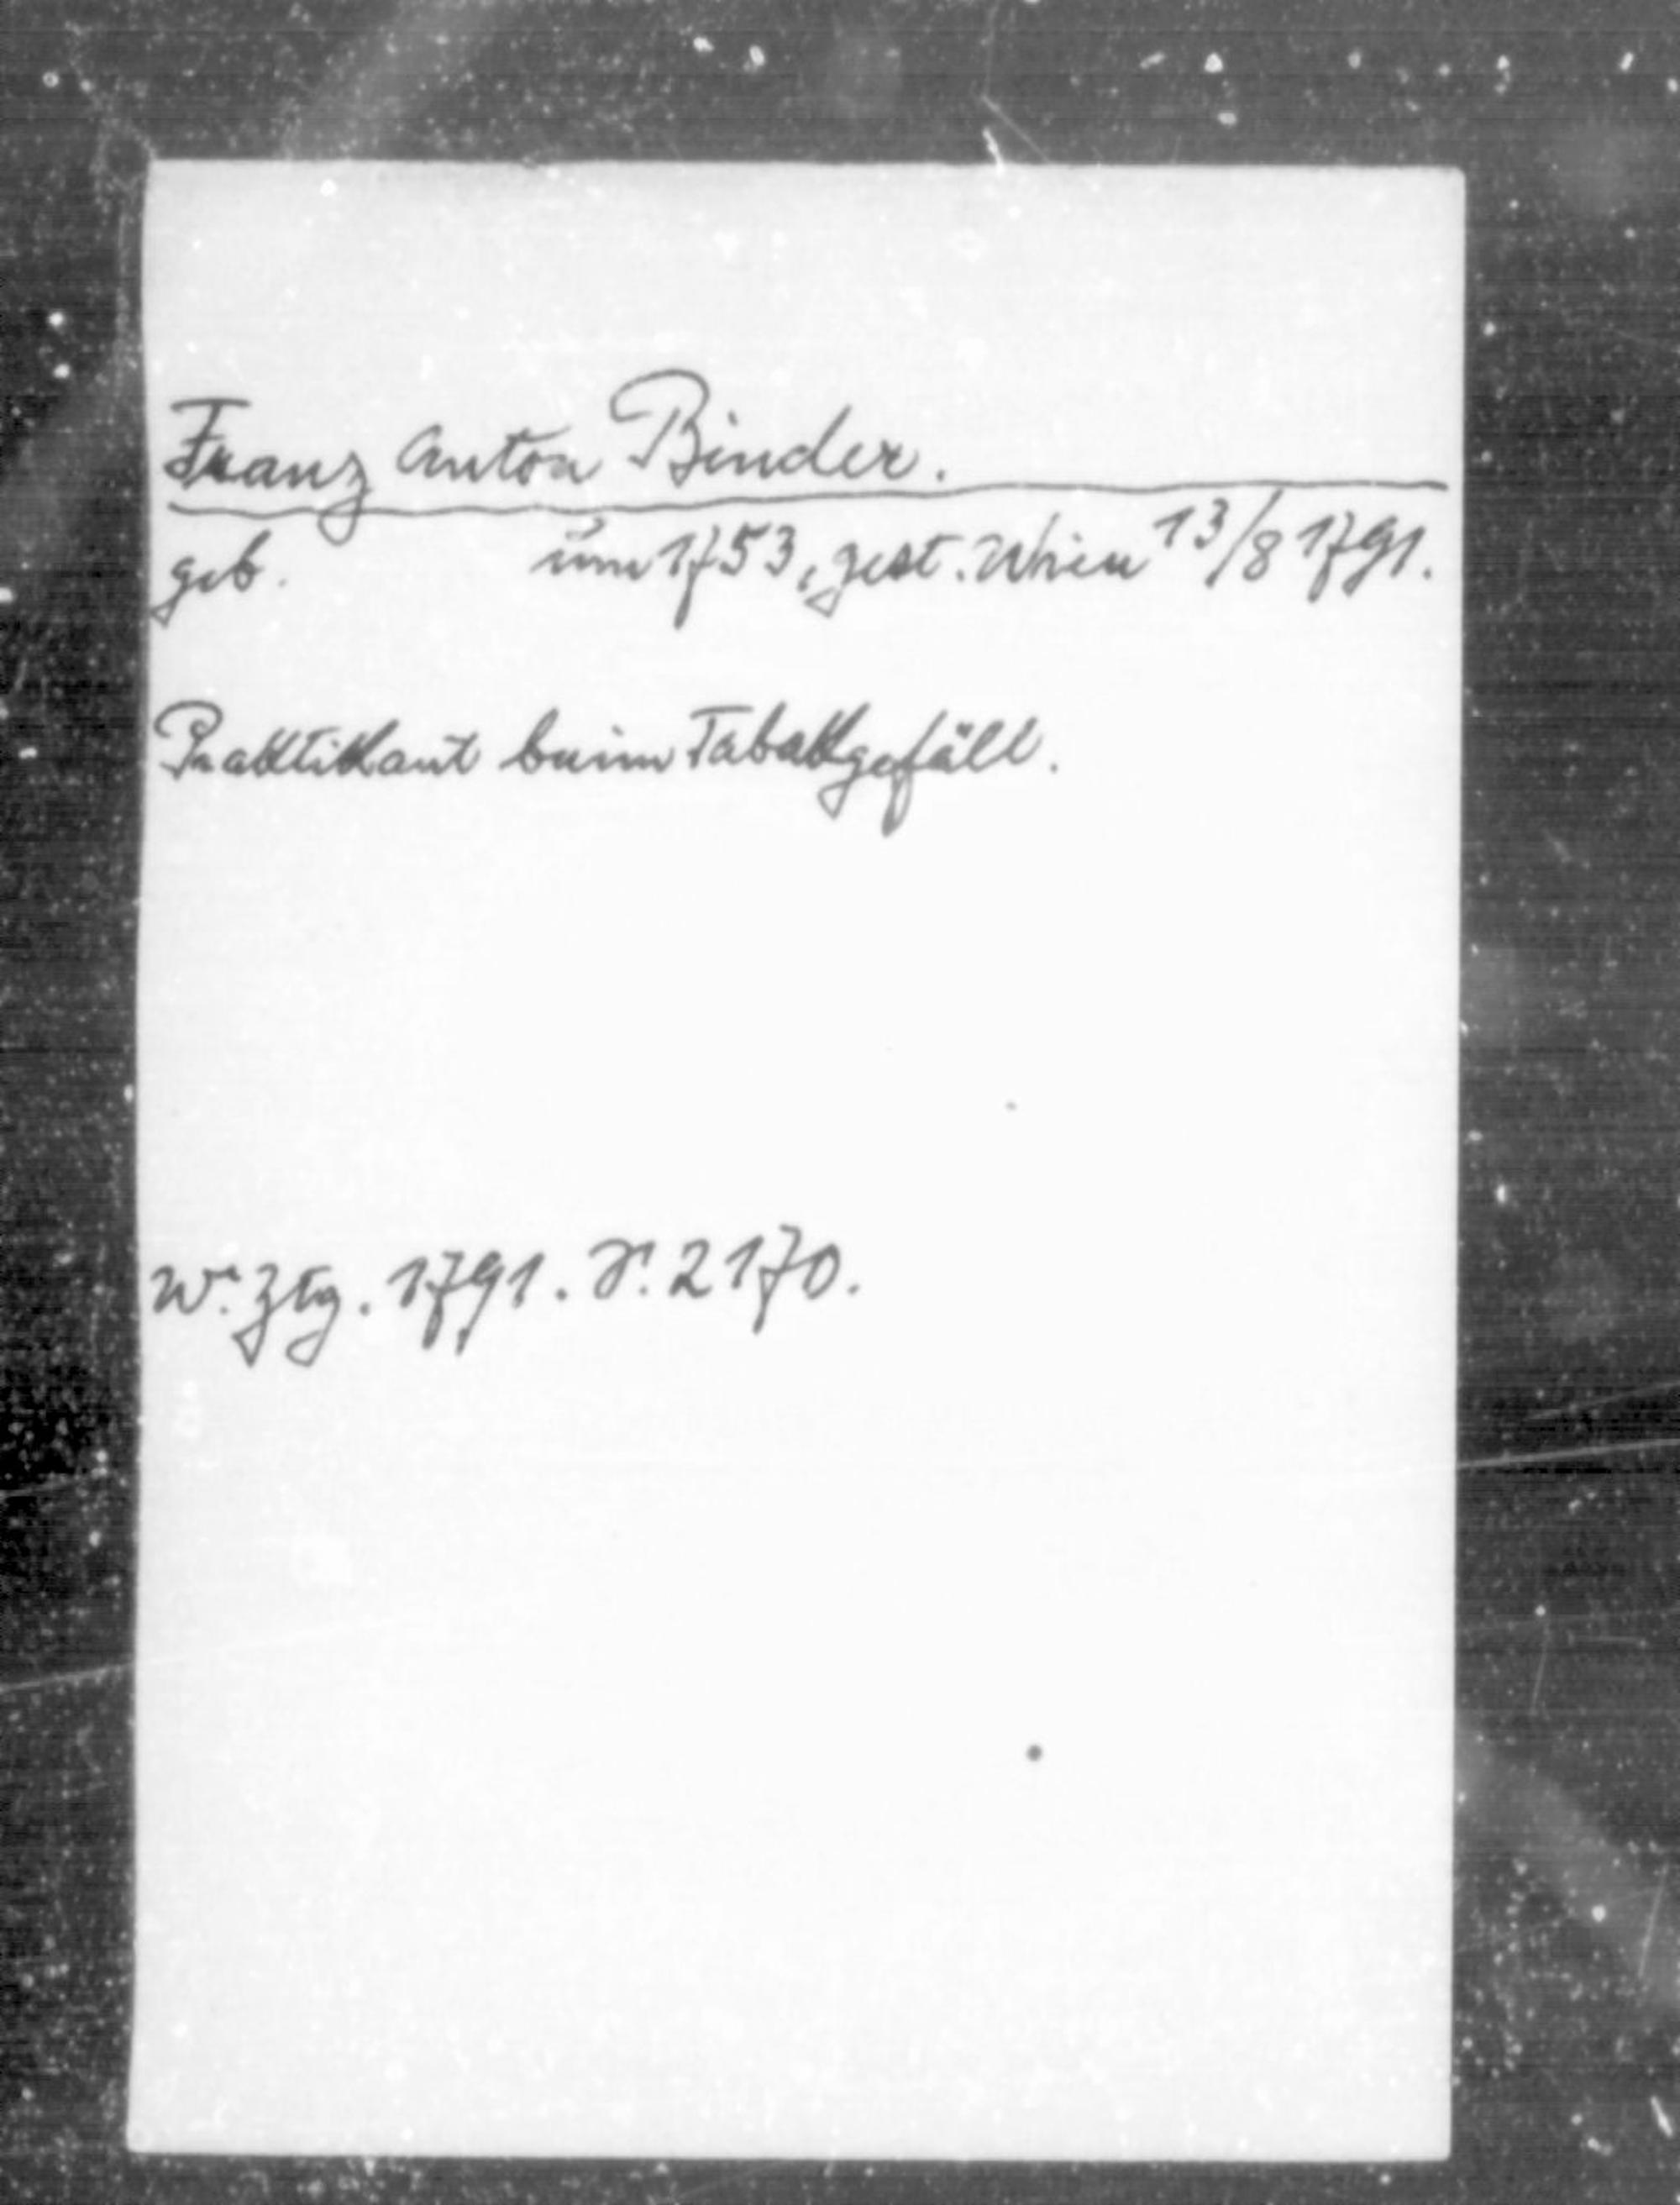 Franz Anton Binder.
geb. um 1753, gest. Wien 13/8 1791.
Praktikant beim Tabakgefäll.
Wr. Ztg. 1791. S. 2170.